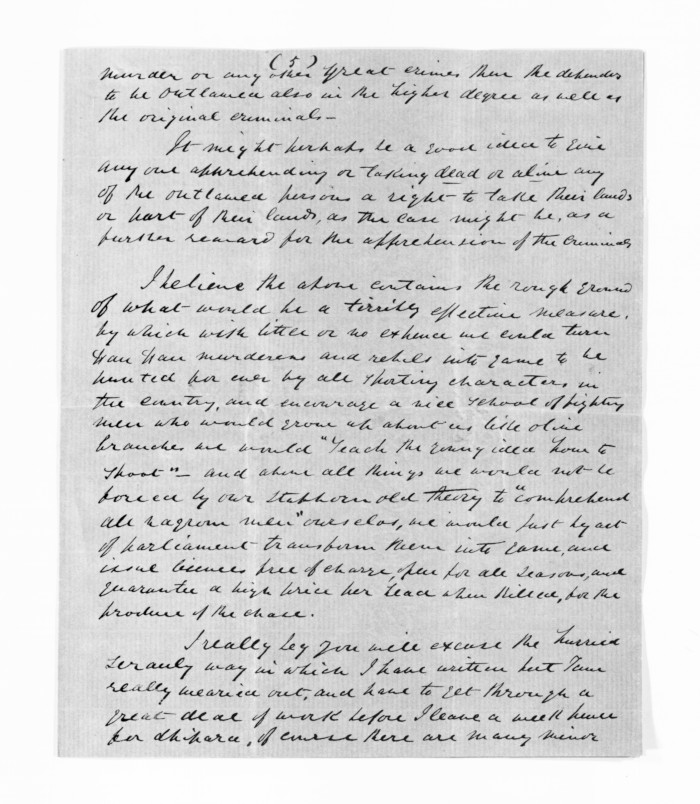 (5)
murder or any other great crimes then the defender
to be outlawed also in the higher degree as well as
the original criminals —
It might perhaps be a good idea to give
any one apprehending or taking dead or alive any
of the outlawed persons a right to take their lands
or part of their lands, as the case might be, as a
further reward for the apprehension of the criminals
I believe the above contains the rough ground
of what would be a terribly effective measure,
by which with little or no expence we could turn
Hau Hau murderers and rebels into game to be
hunted for ever by all sporting characters in
the country, and encourage a nice school of fighting
men who would grow up about us like olive
branches we would "Teach the young idea how to
shoot" — and above all things we would not be
forced by our stubborn old theory to "comprehend
all vagrom men" ourselves, we would just by act
of parliament transform them into game, and
issue licences free of charge, open for all seasons, and
guarantee a high price per head when killed, for the
produce of the chase.
I really beg you will excuse the hurried
scrawly way in which I have written but I am
really wearied out, and have to get through a
great deal of work before I leave a week hence
for, of course there are many minor